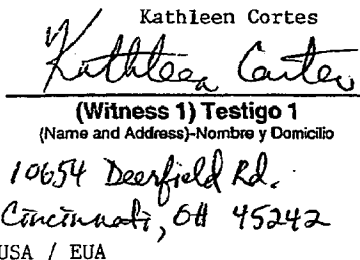 Kathleen Cortes
Kathleen Cortes
(Witness 1) Testigo 1
(Name and Address)-Nombre y Domicilio
10654 Deerfield Rd.
Cincinnati, OH 45242
USA / EUA